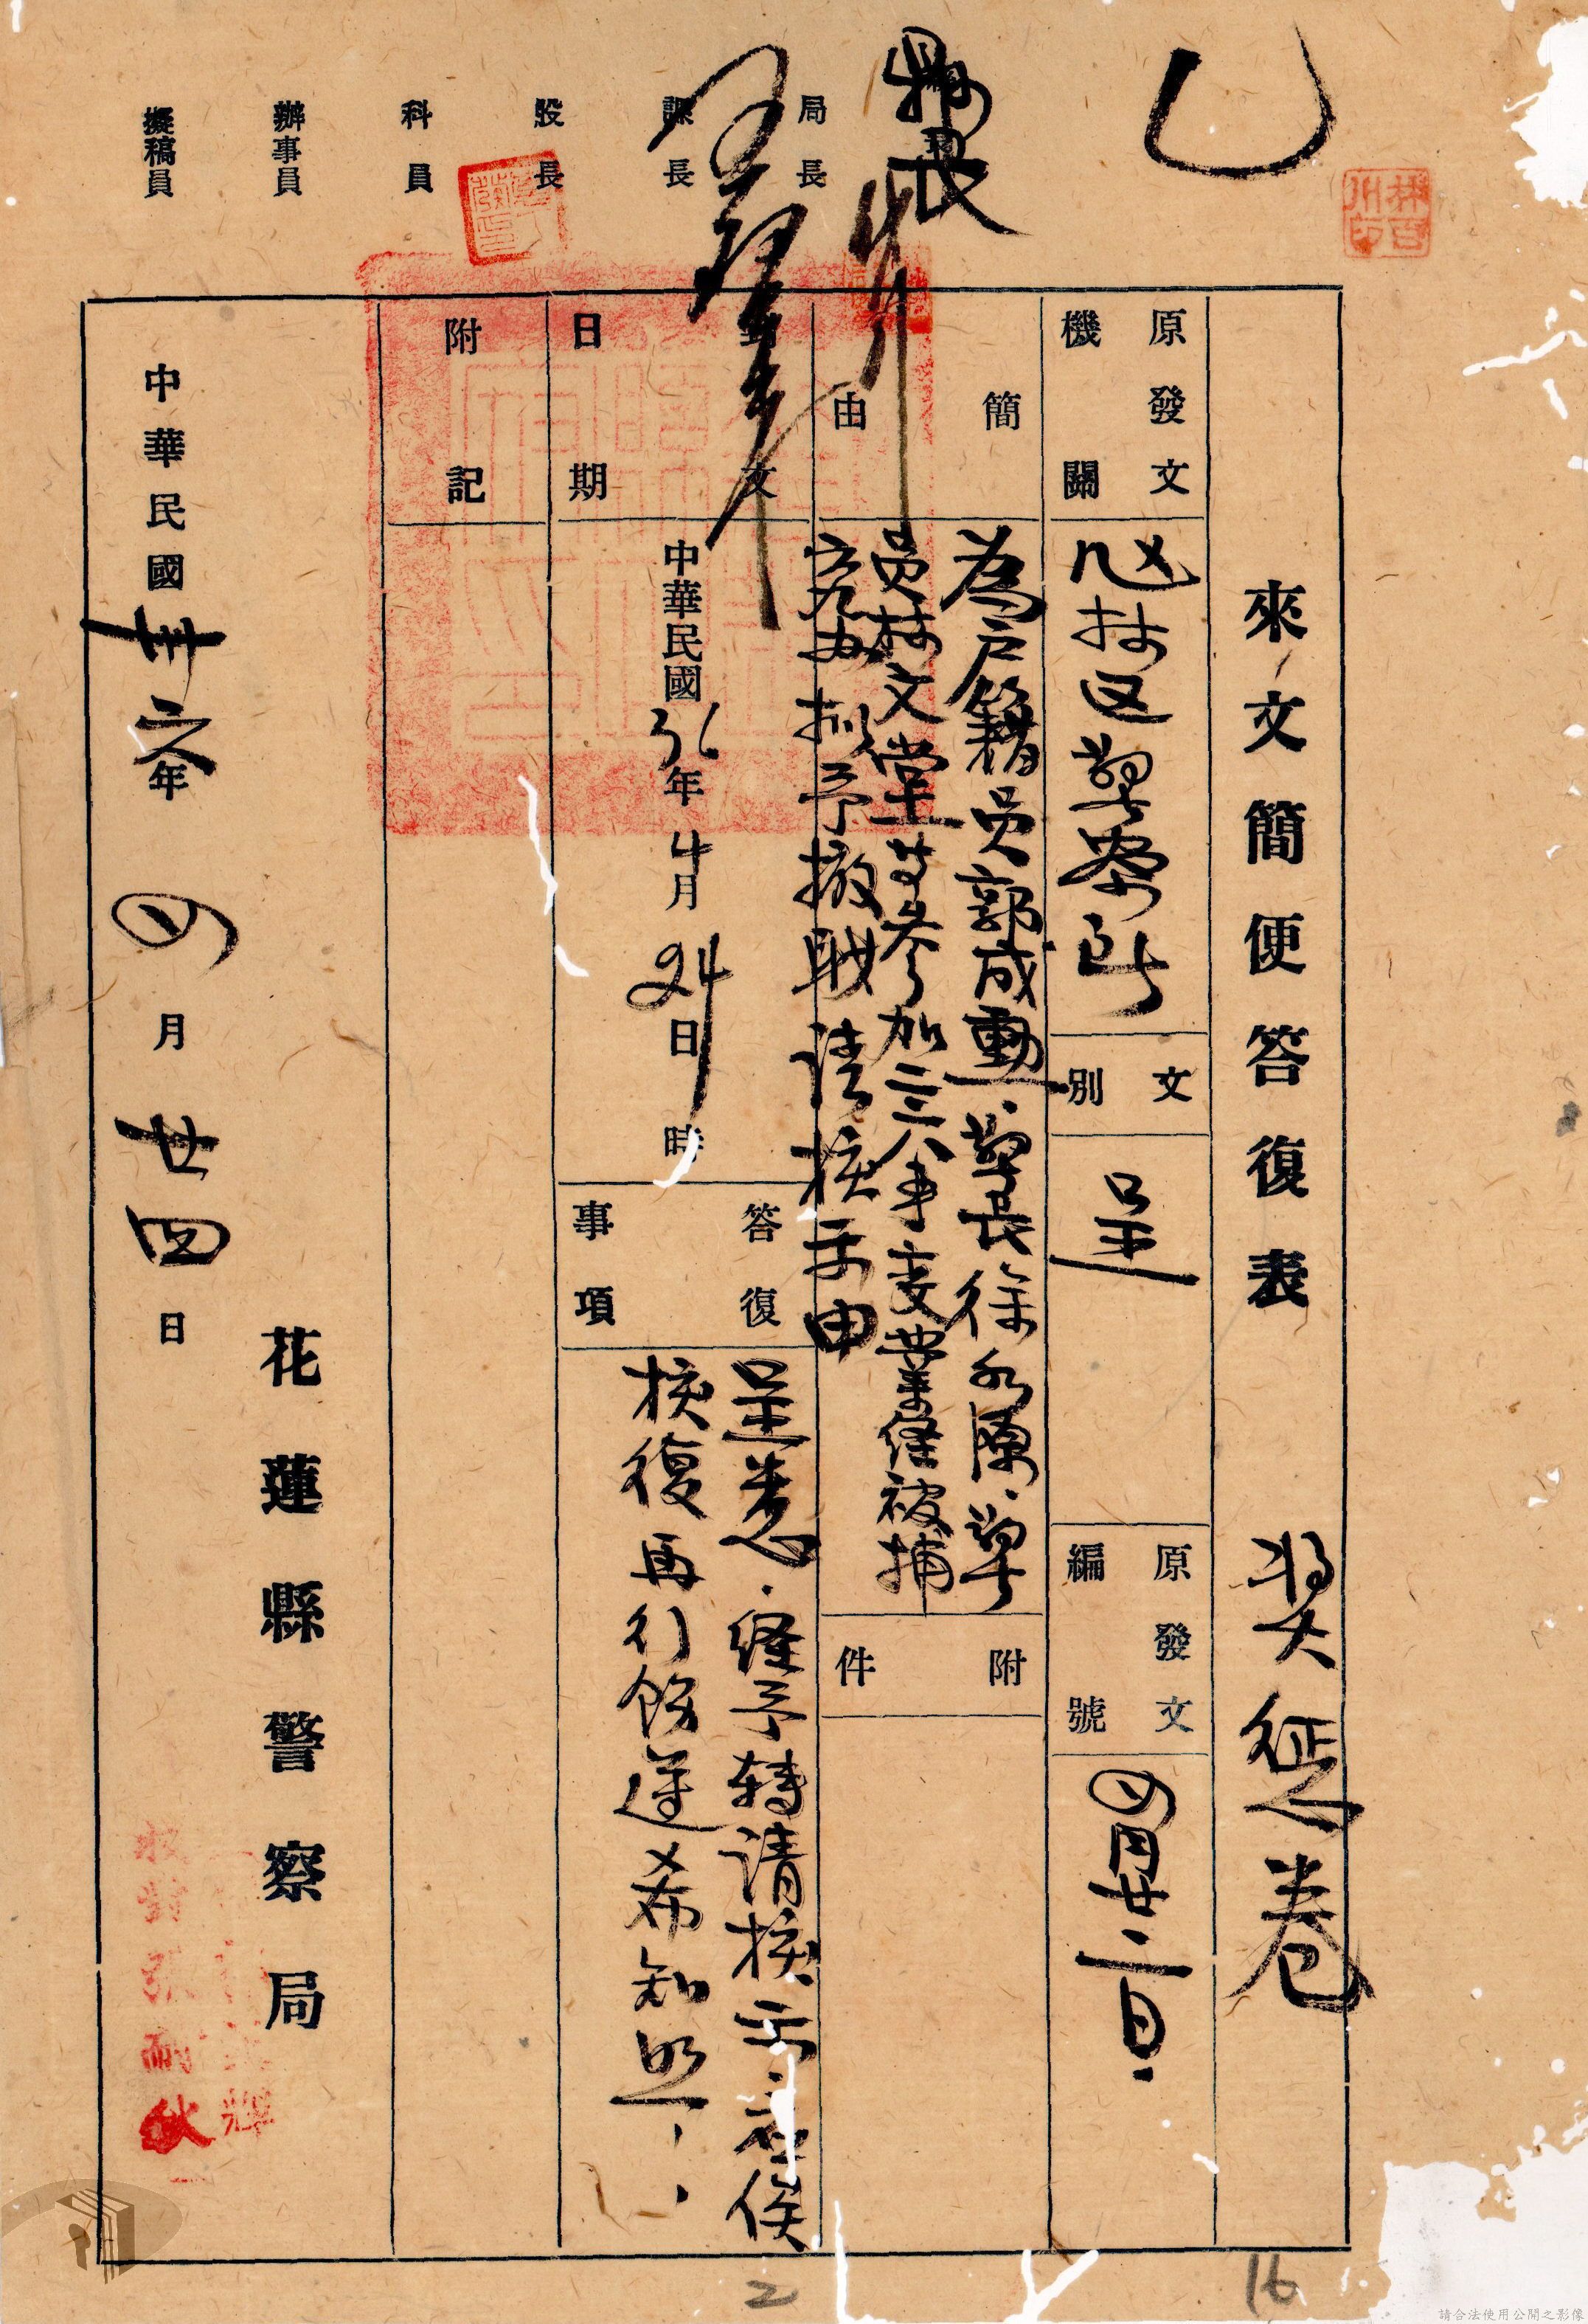 來文簡便答復表
獎懲卷
原發文機關
鳳林区警察所
文別
呈
原發文編號
四月廿二日
簡由
為戶籍員郭成勳、警長徐永陳、警
員林文堂等參加二二八事變業經被捕
究办拟予撤职請核示由
附件
文
日期
中華民國36年4月24日時
答復事項
呈悉、經予轉請核示、应俟
核復再行飭遵希知照
附記
花蓮縣警察局
中華民國卅六年四月廿四日
局長
課長
股長
科員
辦事員
擬稿員
林百川印
2
16
請合法使用公開之影像